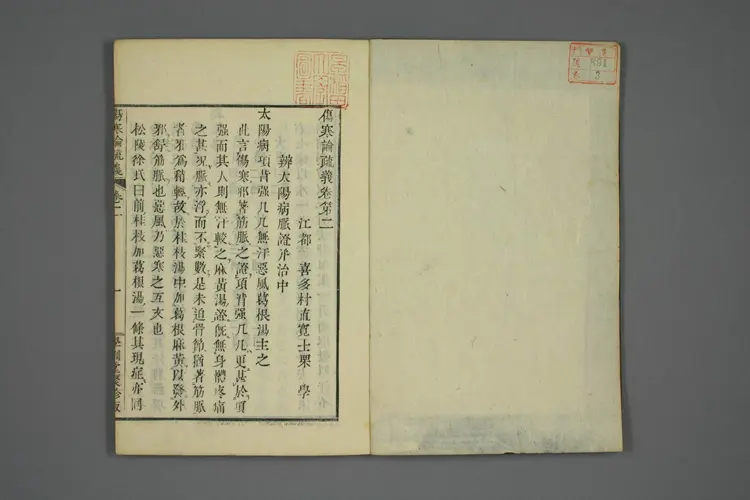 傷寒論疏義卷第二
江都 喜多村直寬士栗 學
辨太陽病脈證幷治中
太陽病項背强几几無汗惡風葛根湯主之
此言傷寒邪著筋脈之證項背强几几更甚於項
强而其人則無汗較之麻黃湯證旣無身體疼痛
之甚況脈亦浮而不緊數是未迫骨節猶著筋脈
者邪爲稍輕故於桂枝湯中加葛根麻黃以發外
邪舒筋脈也惡風乃惡寒之互文也
松陵徐氏曰前桂枝加葛根湯一條其現症亦同
傷寒論疏義 卷二 一